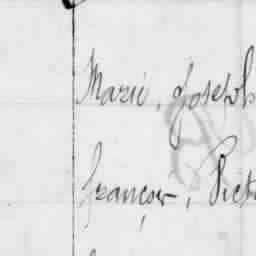 Marie, Joseph
françois, Vict